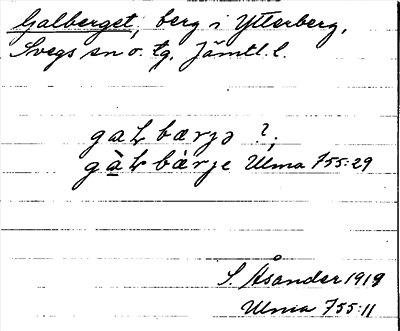 Galberget, berg i Ytterberg,
Svegs sn o. tg. Jämtl. l.
gaḷbærjə ?,
gàḷbàrje Ulma 755:29
S. Åsander 1919
Ulma 755:11